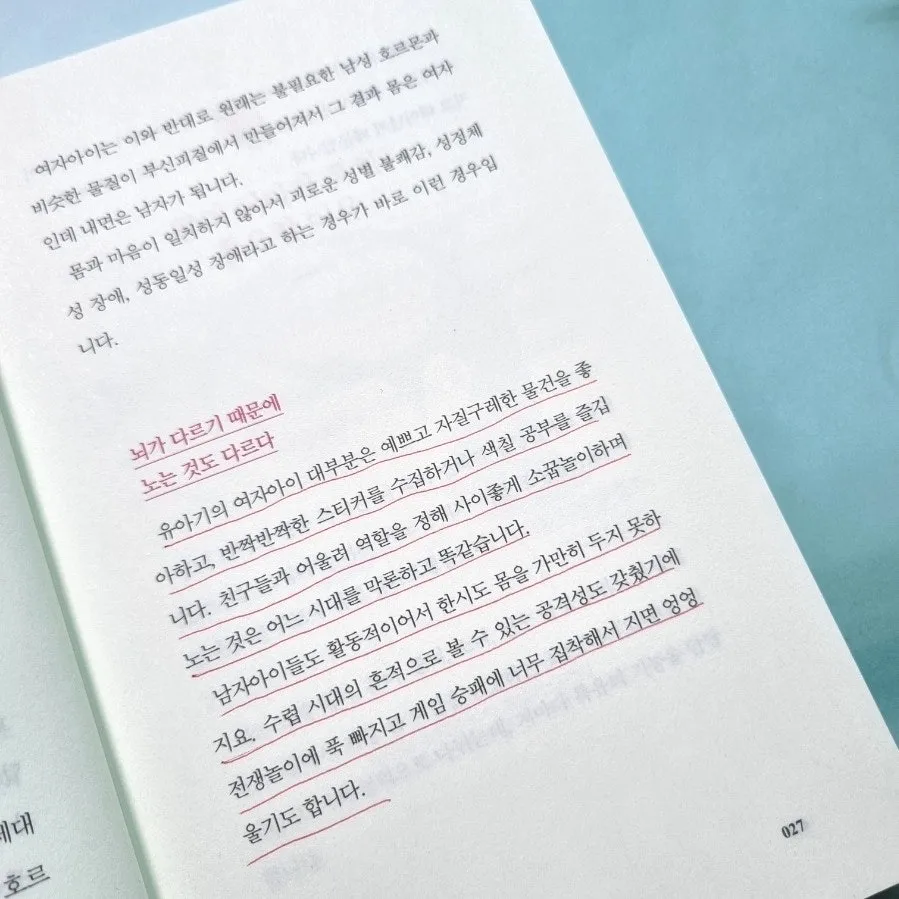 여자아이는 이와 반대로 원래는 불필요한 남성 호르몬과
비슷한 물질이 부신피질에서 만들어져서 그 결과 몸은 여자
인데 내면은 남자가 됩니다.
몸과 마음이 일치하지 않아서 괴로운 성별 불쾌감, 성정체
성 장애, 성동일성 장애라고 하는 경우가 바로 이런 경우입
니다.
뇌가 다르기 때문에
노는 것도 다르다
유아기의 여자아이 대부분은 예쁘고 자질구레한 물건을 좋
아하고, 반짝반짝한 스티커를 수집하거나 색칠 공부를 즐깁
니다. 친구들과 어울려 역할을 정해 사이좋게 소꿉놀이하며
노는 것은 어느 시대를 막론하고 똑같습니다.
남자아이들도 활동적이어서 한시도 몸을 가만히 두지 못하
지요. 수렵 시대의 흔적으로 볼 수 있는 공격성도 갖췄기에
전쟁놀이에 푹 빠지고 게임 승패에 너무 집착해서 지면 엉엉
울기도 합니다.
027
세대
호르